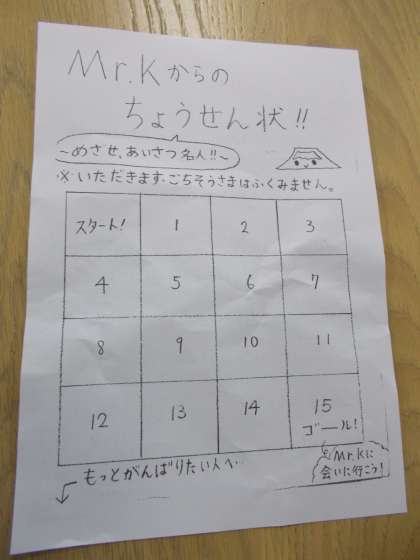 Mr.Kからの
ちょうせん状!!
～めざせ、あいさつ名人!!～
※いただきます・ごちそうさまはふくみません。
スタート! 1 2 3
4 5 6 7
8 9 10 11
12 13 14 15
ゴール!
もっとがんばりたい人へ…
Mr.Kに
会いに行こう!